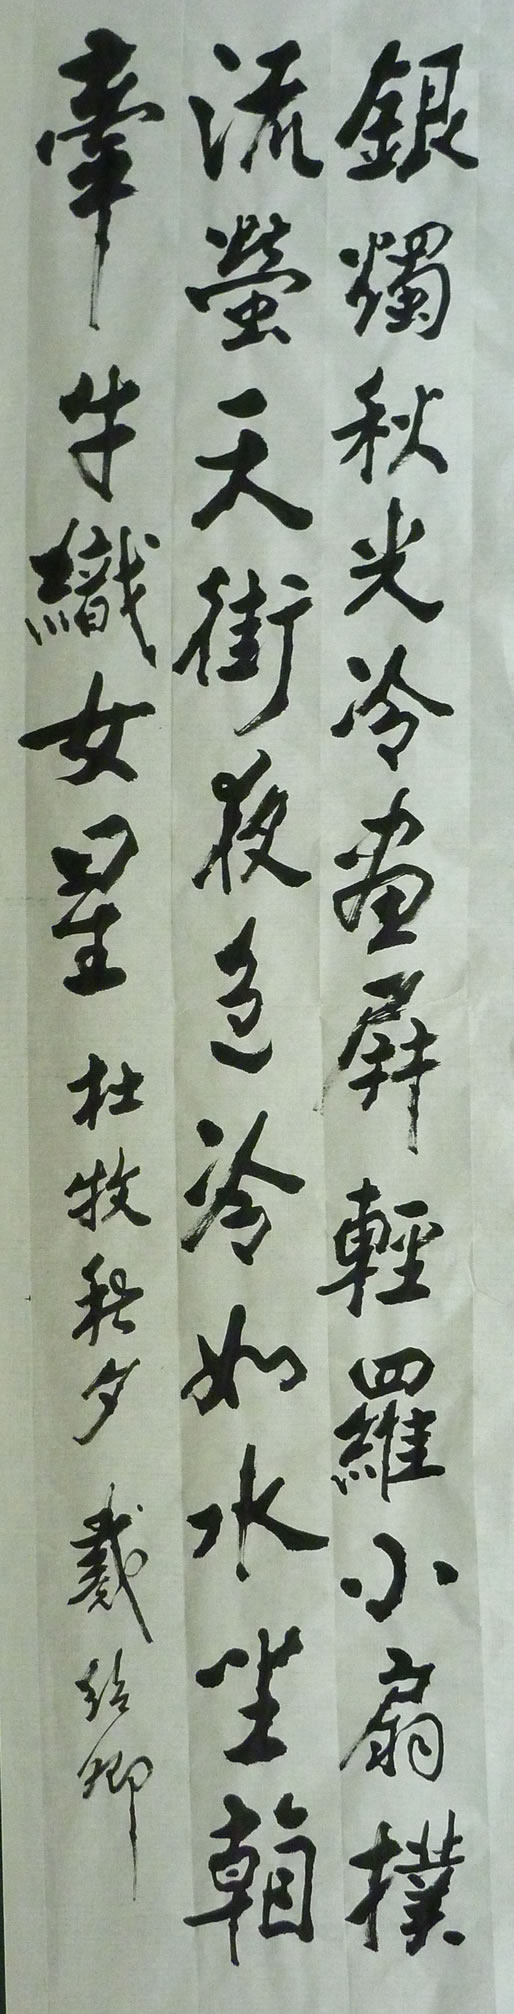 銀燭秋光冷畫屏輕羅小扇撲
流螢天街夜色冷如水坐朝
牽牛織女星 杜牧秋夕 戴紹卿